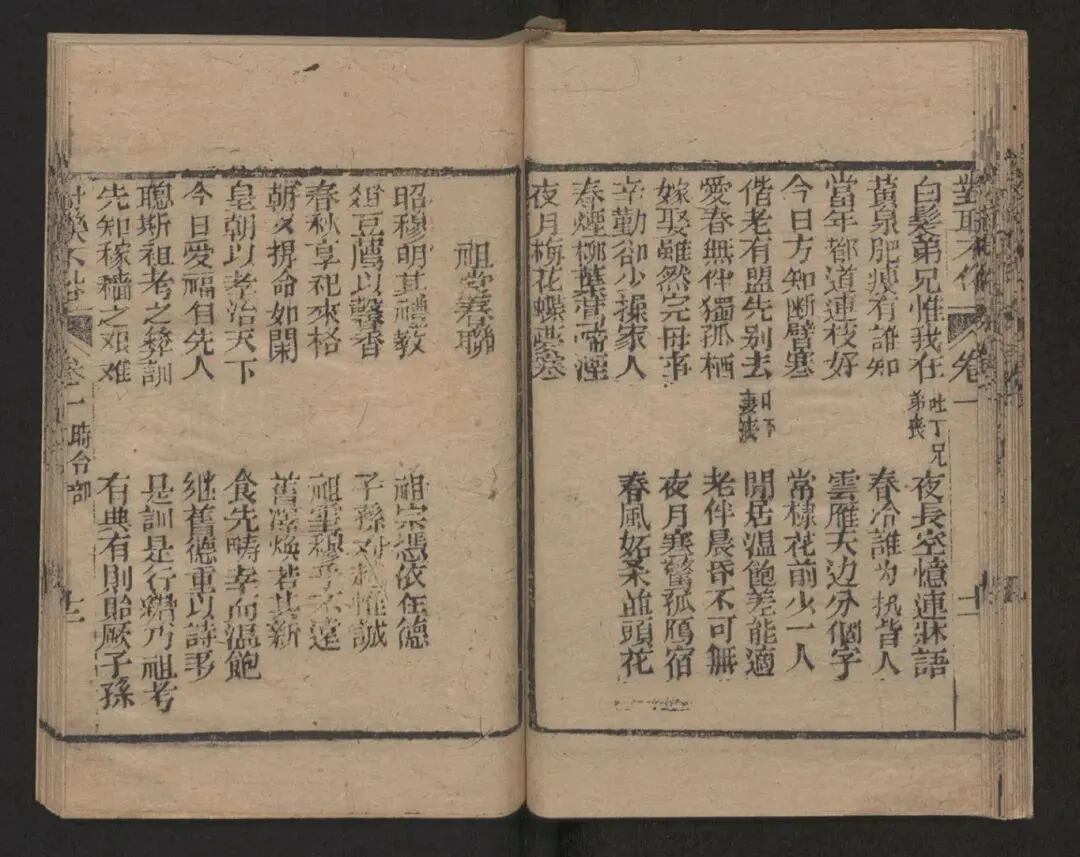 對聯不俗 卷一 十一
白髮弟兄惟我在 夜長空憶連牀語
黃泉肥瘦有誰知 春冷誰为执背人
當年都道連枝好 雲雁天边分個字
今日方知断臂寒 常棣花前少一人
偕老有盟先别去 以下妻喪 閒居温飽差能適
愛春無伴獨孤栖 老伴晨昏不可無
嫁娶雖然完毋事 夜月寒驚孤鴈宿
辛勤卻少操家人 春風妬杀並頭花
春煙柳葉鶯啼湮
夜月梅花蝶夢寒
祖堂春聯
昭穆明其禮教 祖宗憑依在德
俎豆薦以馨香 子孫对越惟誠
春秋享祀來格 祖灵穆乎不遠
朝夕命如閑 舊澤煥若其新
皇朝以孝治天下 食先畴幸而温飽
今日愛福自先人 继舊德重以詩書
聰斯祖考之彝訓 是訓是行乃祖考
先知稼穡之艰难 有典有則貽厥子孫
卷一 時令部